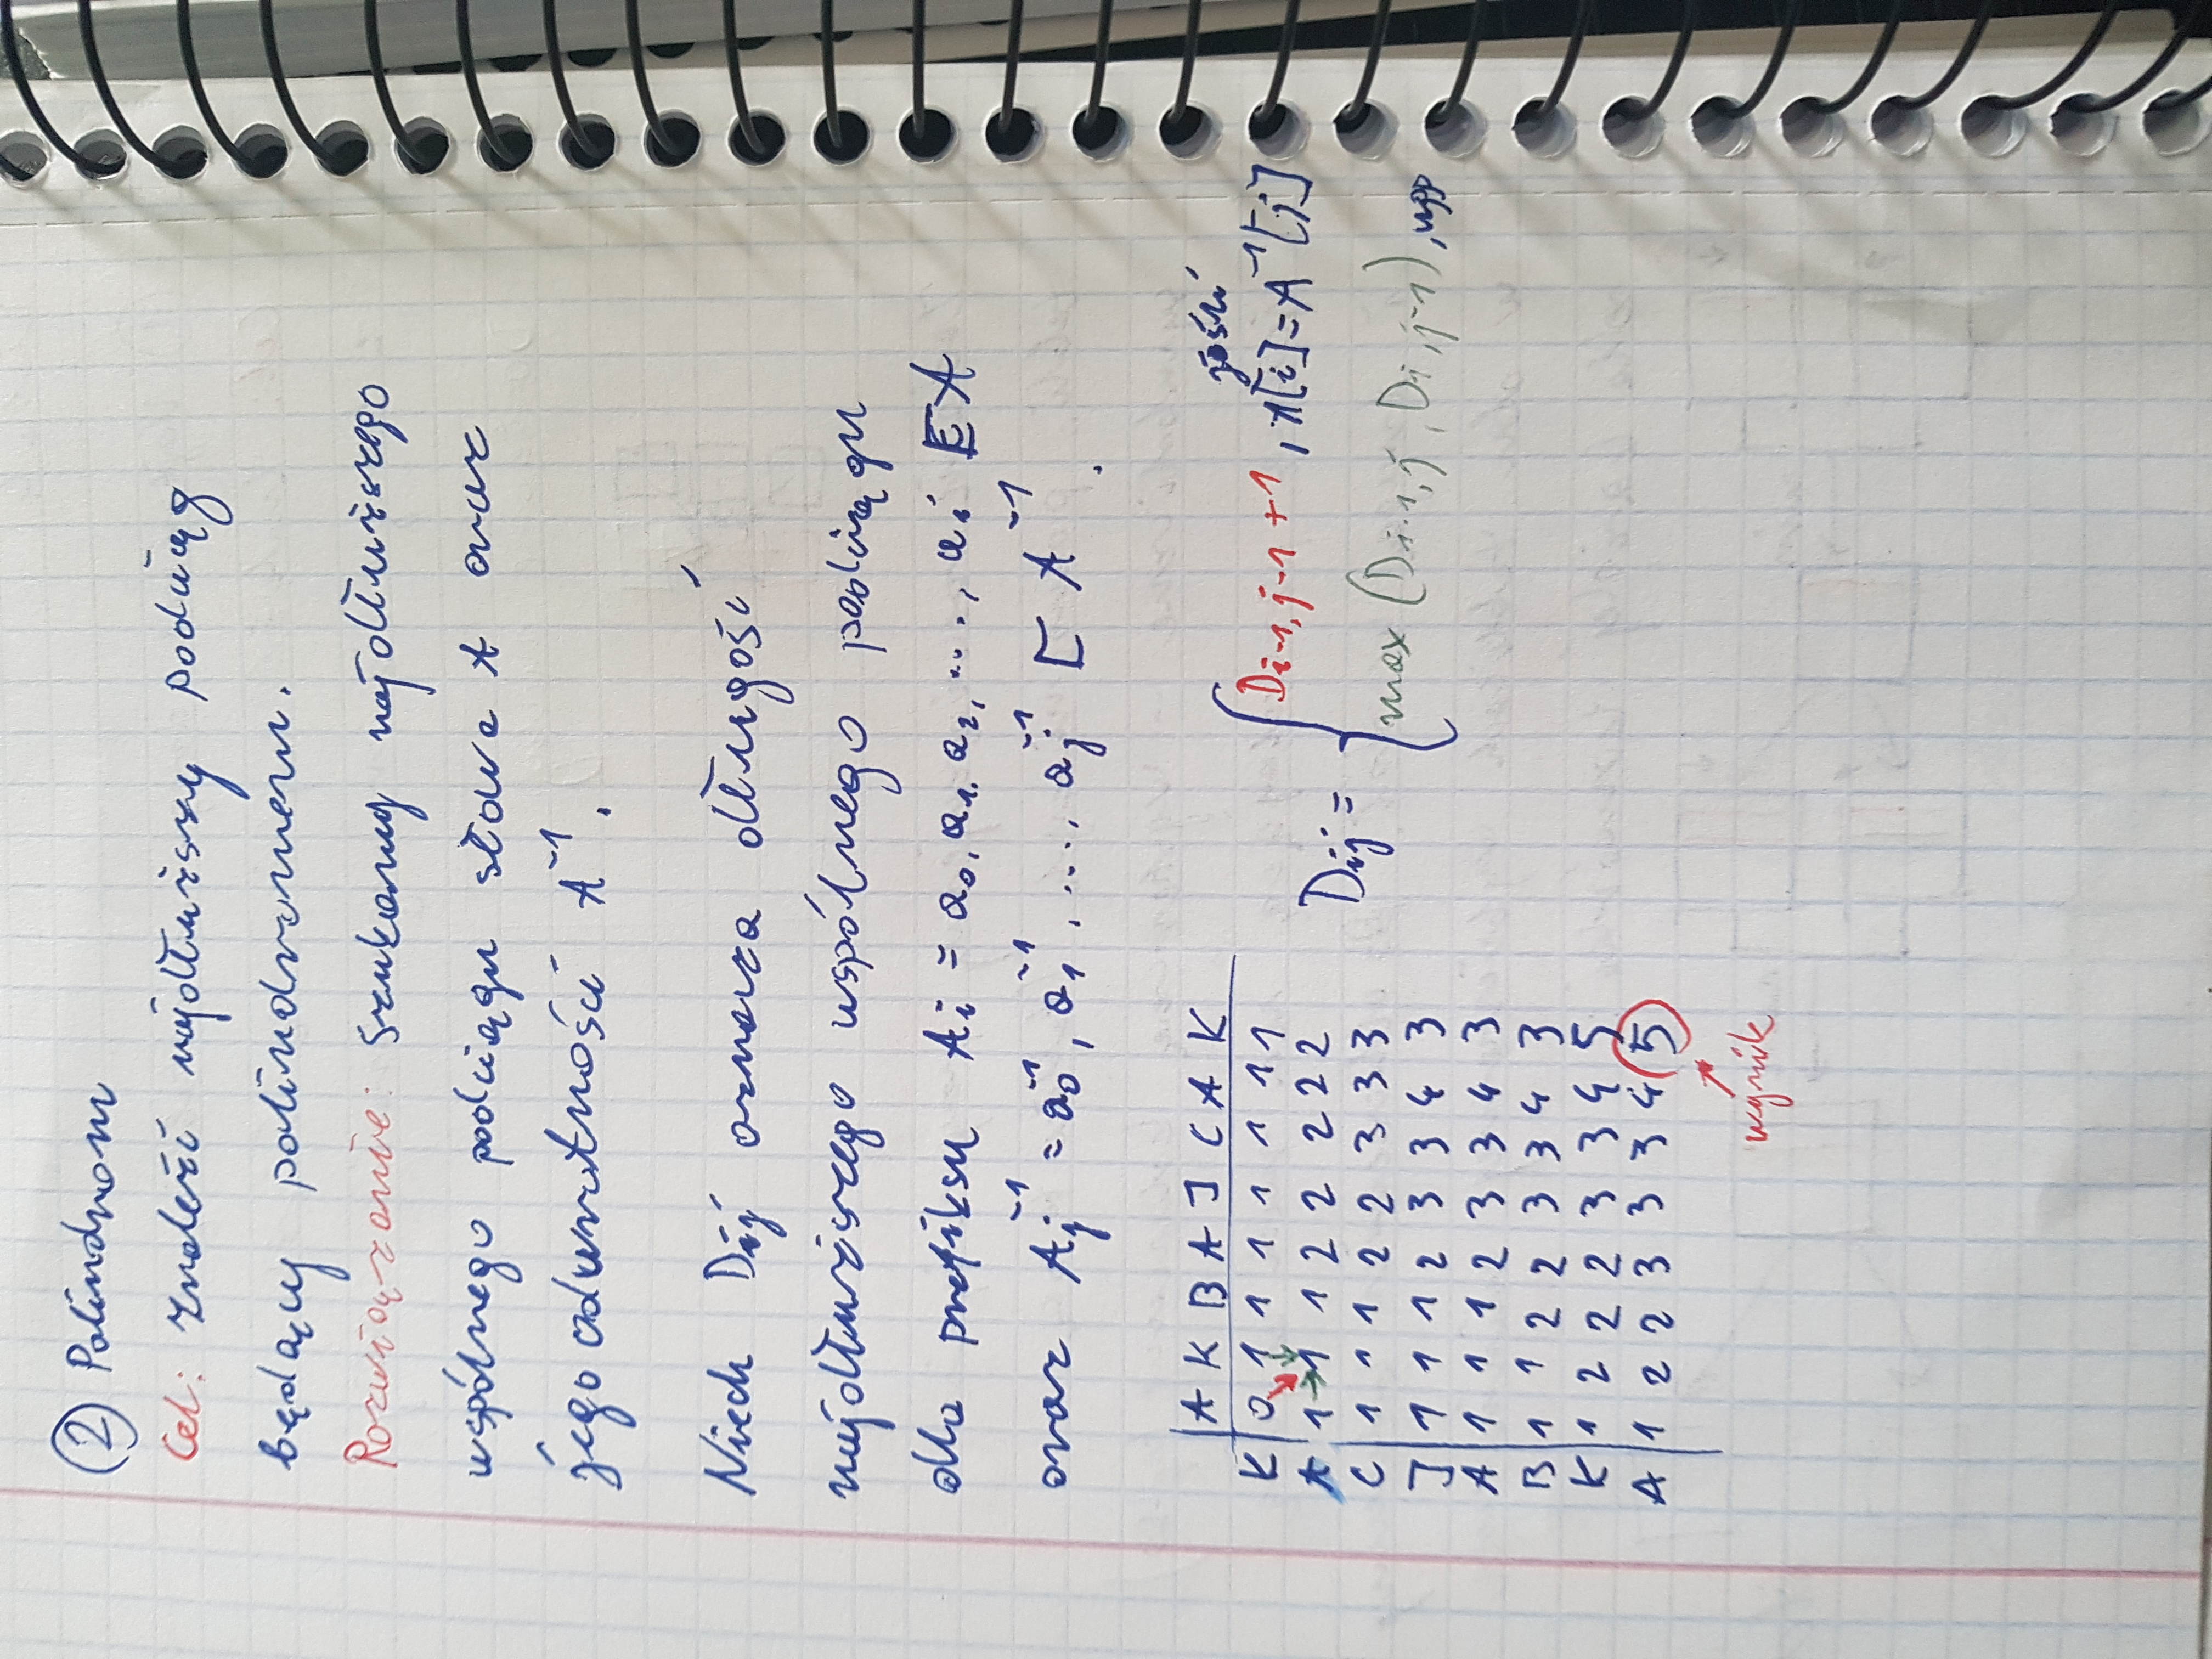 ② Palindrom
Cel: Znaleźć najdłuższy podciąg
będący palindromem.
Rozwiązanie: Szukamy najdłuższego
wspólnego podciągu słowa A oraz
jego odwrotności A⁻¹.
Niech Dij oznacza długość
najdłuższego wspólnego podciągu
dla prefiksu Ai = a₀, a₁, a₂, ..., ai ⊏ A
oraz Aj⁻¹ = a₀⁻¹, a₁⁻¹, ...., aj⁻¹ ⊏ A⁻¹.
A K B A J C A K
K 0 1 1 1 1 1 1 1
A 1 1 1 2 2 2 2 2
C 1 1 1 2 2 3 3 3
J 1 1 1 2 3 3 4 3
A 1 1 1 2 3 3 4 3
B 1 1 2 2 3 3 4 3
K 1 2 2 2 3 3 4 5
A 1 2 2 3 3 3 4 5
wynik
Dij = { Di-1,j-1 + 1 , jeśli A[i] = A⁻¹[j]
max (Di-1,j , Di,j-1) , wpp